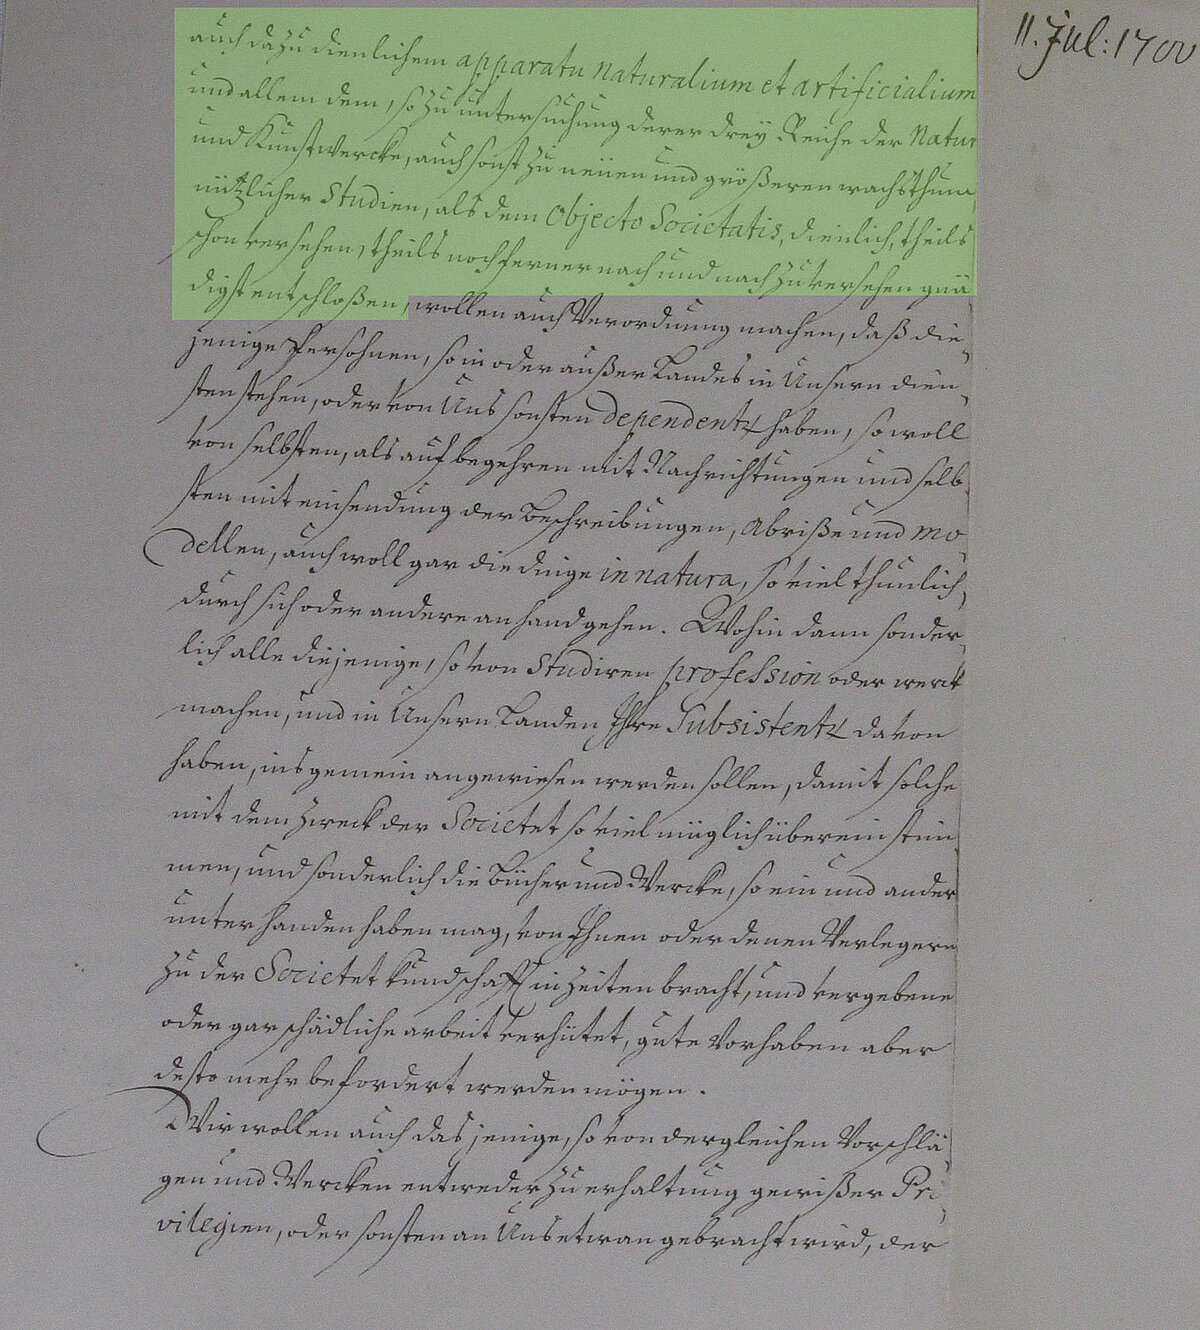 11. Jul: 1700
auch dazu dienlichem apparatu naturalium et artificialium
und allem dem, so zu untersuchung derer drey Reiche der Natur
und Kunstwercke, auch sonst zu neüen und größeren wachsthum
nützlicher Studien, als dem Objecto Societatis, dienlich, theils
schon versehen, theils noch ferner nach und nach zu versehen gnä
digst entschloßen, wollen auch Verordnung machen, daß die-
jenige Persohnen, so in oder außer Landes in Unsern dien-
sten stehen, oder von Uns sonsten dependentz haben, so woll
von selbsten, als auf begehren mit Nachrichtungen und selb-
sten mit einsendung der Beschreibungen, Abriße und Mo-
dellen, auch woll gar die dinge in natura, so viel thunlich,
durch sich oder andere an hand gehen. Wohin dann sonder-
lich alle diejenige, so von Studiren profession oder werck
machen, und in Unsern Landen Ihre Subsistentz davon
haben, ins gemein angewiesen werden sollen, damit solche
mit dem Zweck der Societet so viel müglich überein stim
men, und sonderlich die Bücher und Wercke, so ein und ander
unterhanden haben mag, von Ihnen oder denen Verlegern
zu der Societet kundschafft in Zeiten bracht, und vergebene
oder gar schädliche arbeit verhütet, gute Vorhaben aber
desto mehr befordert werden mögen.
Wir wollen auch dasjenige, so von dergleichen Vorschlä
gen und Wercken entweder zu erhaltung gewißer Pri
vilegien, oder sonsten an Uns etwan gebracht wird, der